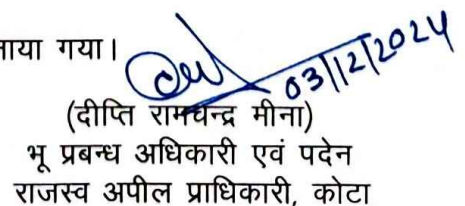 नाया गया।
03/12/2024
(दीप्ति रामचन्द्र मीना)
भू प्रबन्ध अधिकारी एवं पदेन
राजस्व अपील प्राधिकारी, कोटा